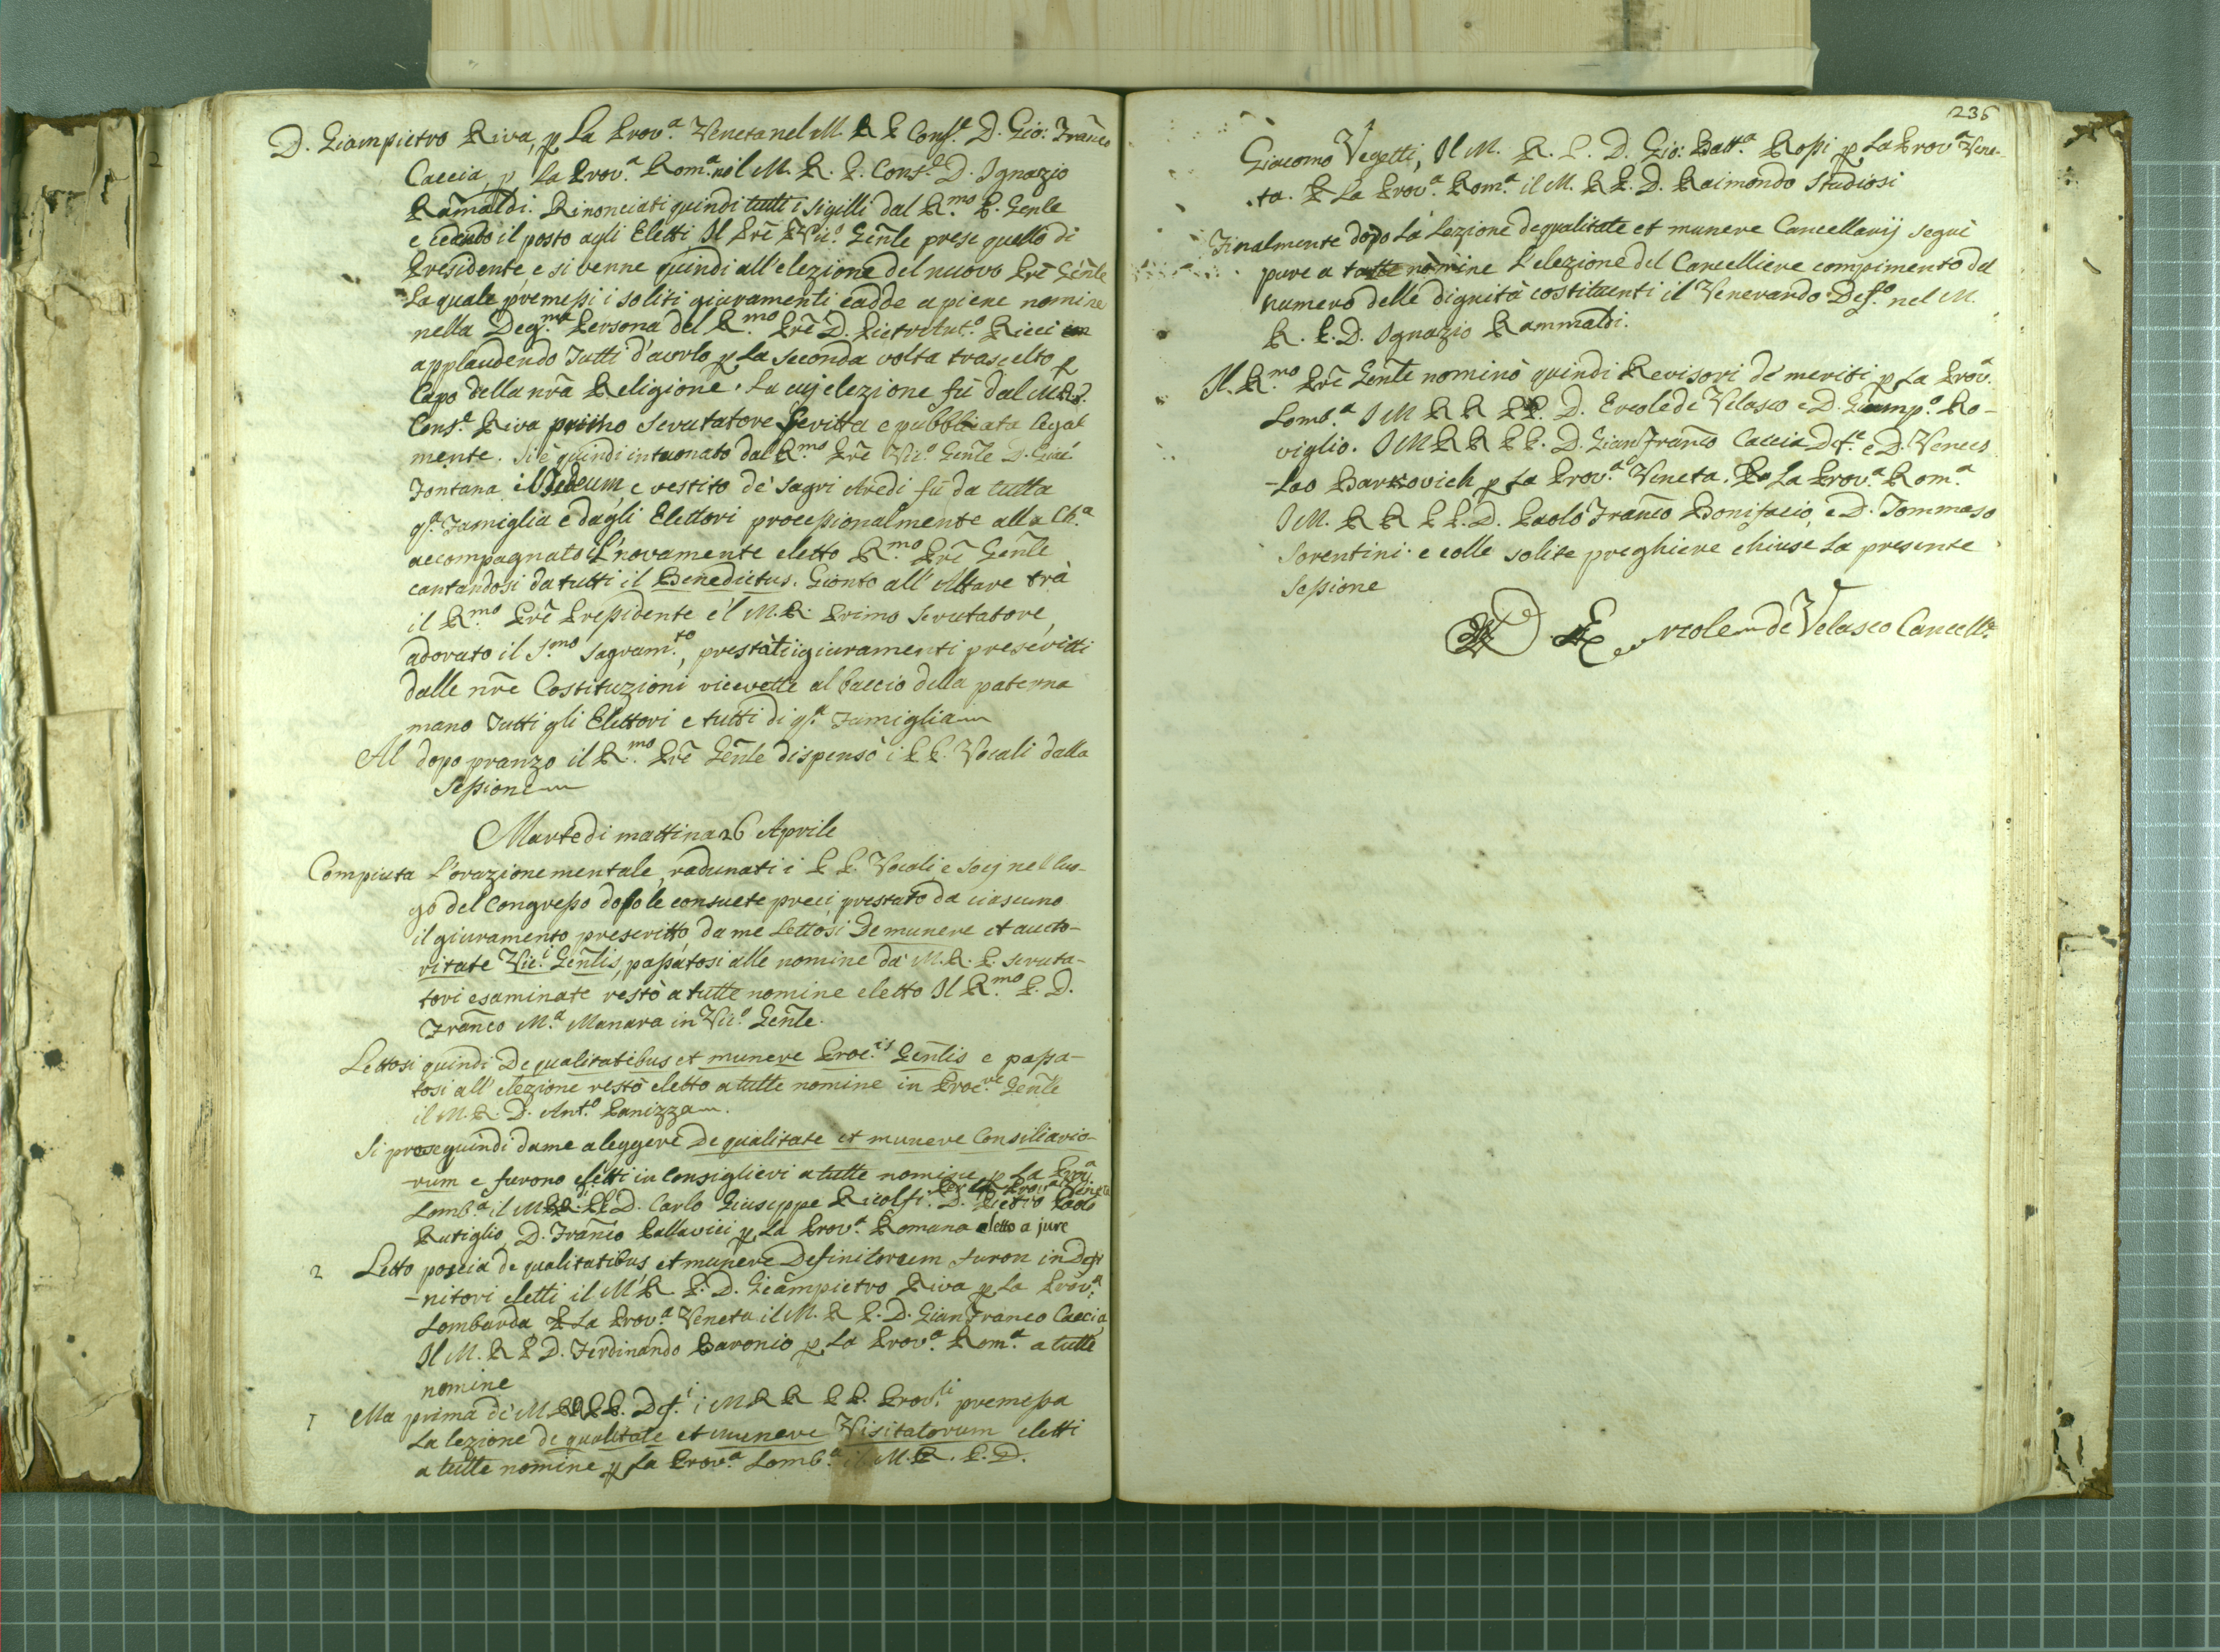 D. Giampietro Riva, p la Prov.a Veneta nel M. R. P. Cons.e D. Gio: Franco
Caccia, p la Prov.a Rom.a nel M. R. P. Cons.e D. Ignazio
Ramaldi. Rinonciati quindi tutti i sigilli dal R.mo P. Genle
e cedendo il posto agli Eletti Il Pre Vic.o Genle prese quello di
Presidente, e si venne quindi all'elezione del nuovo Pre Genle
La quale premessi i soliti giuramenti cadde a piene nomine
nella Deg.ma Persona del R.mo Pre D. Pietro Ant.o Ricci
applaudendo Tutti d'averlo p la seconda volta trascelto p
Capo della nra Religione. La cuj elezione fù dal M.R.P.
Cons.e Riva primo Scrutatore scritta e pubblicata legal
mente. Si è quindi intuonato dal R.mo Pre Vic.o Genle D.
Fontana il Te Deum, e vestito de' Sagri Aredi fù da tutta
q.a Famiglia e dagli Elettori processionalmente alla Ch.a
accompagnato il novamente eletto R.mo Pre Genle
cantandosi da tutti il Benedictus. Gionto all'Altare trà
il R.mo Pre Presidente e'l M.R. Primo Scrutatore,
adorato il S.mo Sagram.to, prestàti i giuramenti prescritti
dalle nre Costituzioni ricevette al baccio della paterna
mano Tutti gli Elettori e tutti di q.a Famiglia
Al dopo pranzo il R.mo Pre Genle dispensò i P P. Vocali dalla
Sessione
Martedi mattina 26 Aprile
Compiuta L'orazione mentale, radunati i P P. Vocali e Socj nel luo-
go del Congresso dopo le consuete preci, prestato da ciascuno
il giuramento prescritto, da me Lettosi De munere et aucto-
ritate Vic.i Genlis, passatosi alle nomine da' M. R. P. scruta-
tori esaminate restò a tutte nomine eletto Il R.mo P. D.
Franco M.a Manara in Vic.o Genle.
Lettosi quindi De qualitatibus et munere Proc.is Genlis e passa-
tosi all'elezione restò eletto a tutte nomine in Proc.re Genle
il M. R. D. Ant.o Panizza.
Si prosequindi da me a leggere De qualitate et munere Consiliario-
-rum e furono eletti in Consiglieri a tutte nomine p La Prov.a
Lomb.a il M.R. P. D. Carlo Giuseppe Ricolfi. Per la Prov.a Veneta D. Pietro Paolo
Rutiglio, D. Franco Pallavici p La Prov.a Romana eletto a jure
2 Letto poscia de qualitatibus et munere Definitorum furon in Defi
-nitori eletti il M. R. P. D. Giampietro Riva p La Prov.a
Lombarda P La Prov.a Veneta il M. R. P. D. Gian Franco Caccia
Il M. R. P. D. Ferdinando Baronio p La Prov.a Rom.a a tutte
nomine
1 Ma prima de' M RR PP. Def.i i M R R P P. Prov.li premessa
La lezione de qualitate et munere Visitatorum eletti
a tutte nomine p La Prov.a Lomb.a il M. R. P. D.
236
Giacomo Vegetti, Il M. R. P. D. Gio: Batt.a Rossi p La Prov.a Vene-
-ta. P La Prov.a Rom.a il M. R P. D. Raimondo Studiosi
Finalmente dopo La Lezione de qualitate et munere Cancellarij seguì
pure a tutte nomine l'elezione del Cancelliere compimento del
numero delle dignità costituenti il Venerando Def.o nel M.
R. P. D. Ignazio Rammaldi.
Il R.mo Pre Genle nominò quindi Revisori de' meriti p La Prov.a
Lomb.a I M R R P P. D. Ercole de Velasco e D. Giamp.o Ro-
viglio. I M R R P P. D. Gian Franco Caccia Def.e e D. Vences
-lao Barkovich p La Prov.a Veneta. P La Prov.a Rom.a
I M. R R P P. D. Paolo Franco Bonifacio, e D. Tommaso
Sorentini. e colle solite preghiere chiuse La presente
Sessione
D. Ercole de Velasco Cancell.e